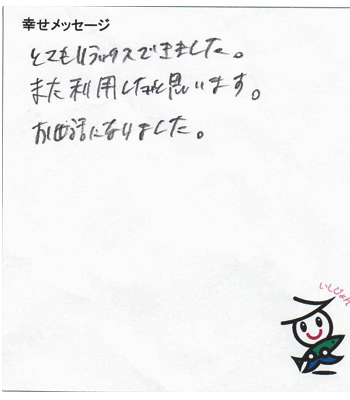 幸せメッセージ
とてもリラックスできました。
また利用したいと思います。
お世話になりました。
いしぴょん